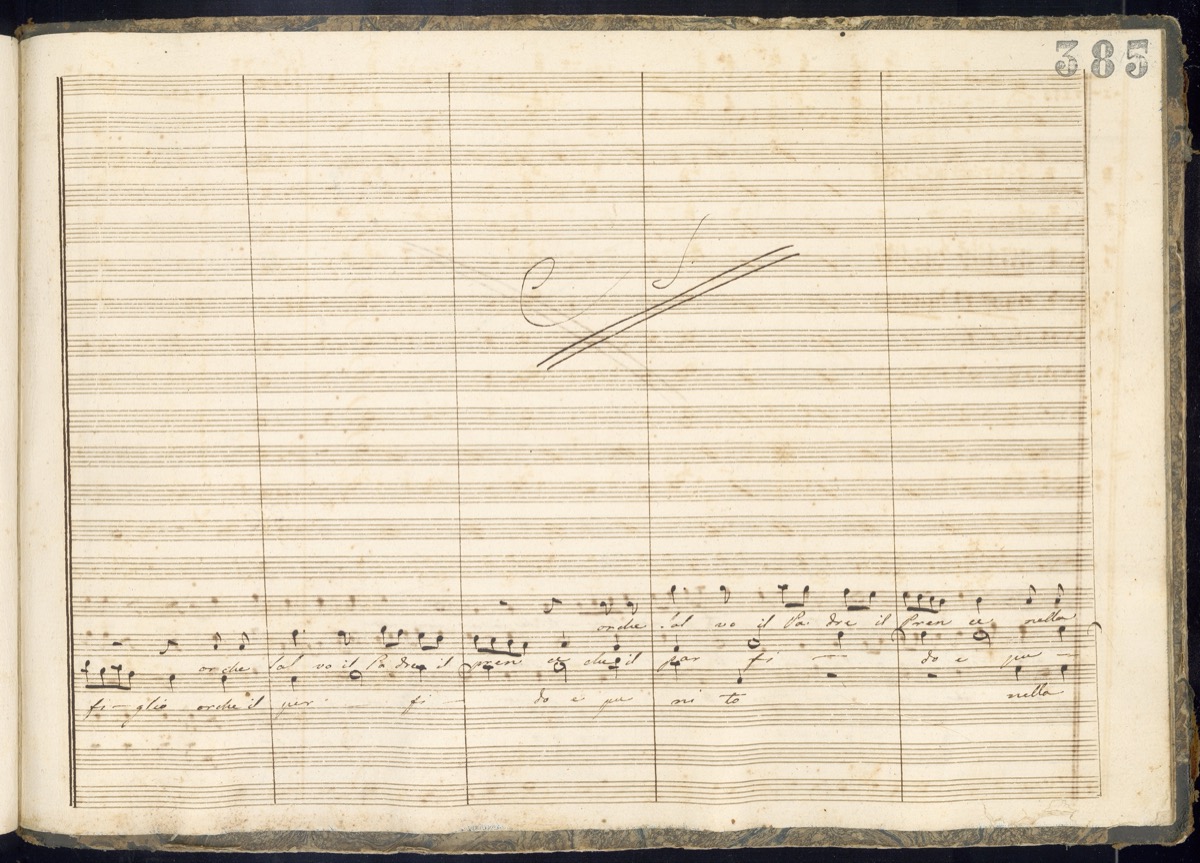 385
C S.
orche sal vo il Pa dre il Pren ce nella
orche sal vo il Pa dre il pren ce che il per fi — do e pu —
fi — glio orche il per — fi — do e pu ni to nella